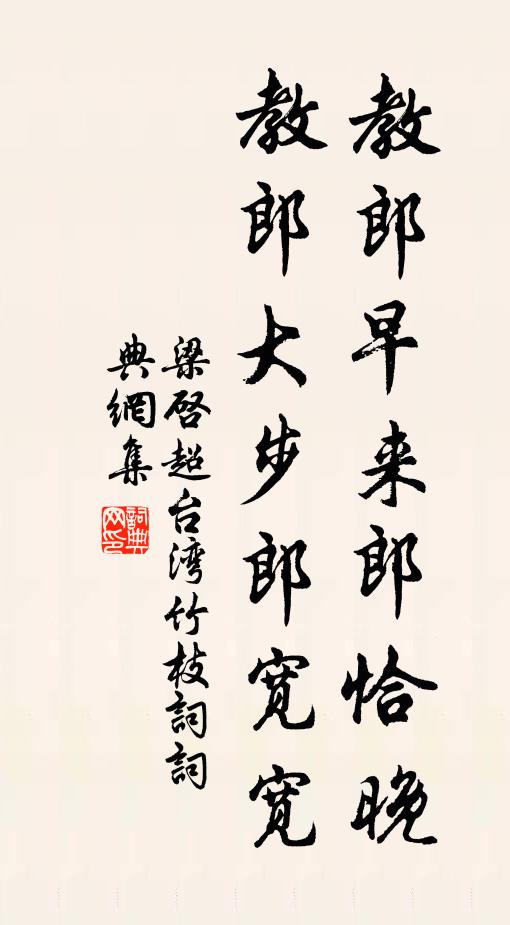 教郎早来郎恰晚
教郎大步郎宽宽
梁啓超台湾竹枝詞詞
典網集
詞典网印